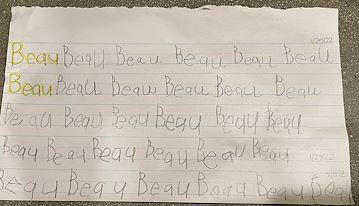 1/25/22
Beau Beau Beau Beau Beau Beau
Beau Beau Beau Beau Beau Beau
Beau Beau Beau Beau Beau Beau
Beau Beau Beau Beau Beau Beau
Beau Beau Beau Beau Beau Beau